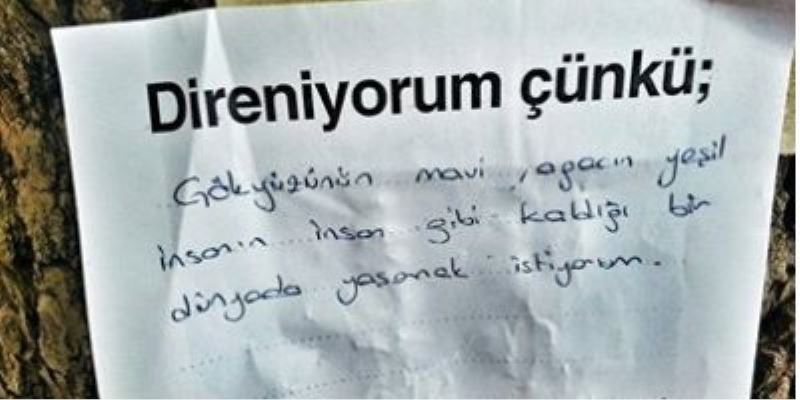 Direniyorum çünkü;
Gökyüzünün mavi, ağacın yeşil
insanın insan gibi kaldığı bir
dünyada yaşamak istiyorum.